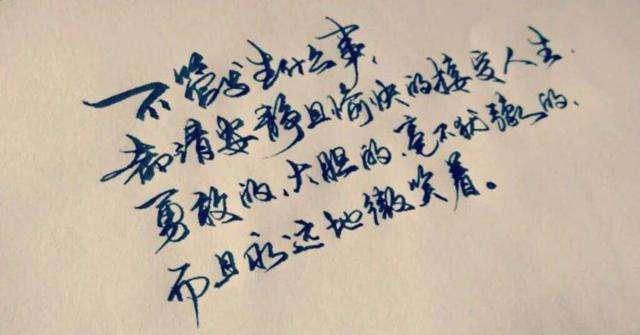 不管发生什么事、
都请安静且愉快的接受人生.
勇敢的、大胆的、毫不犹豫的.
而且永远地微笑着。